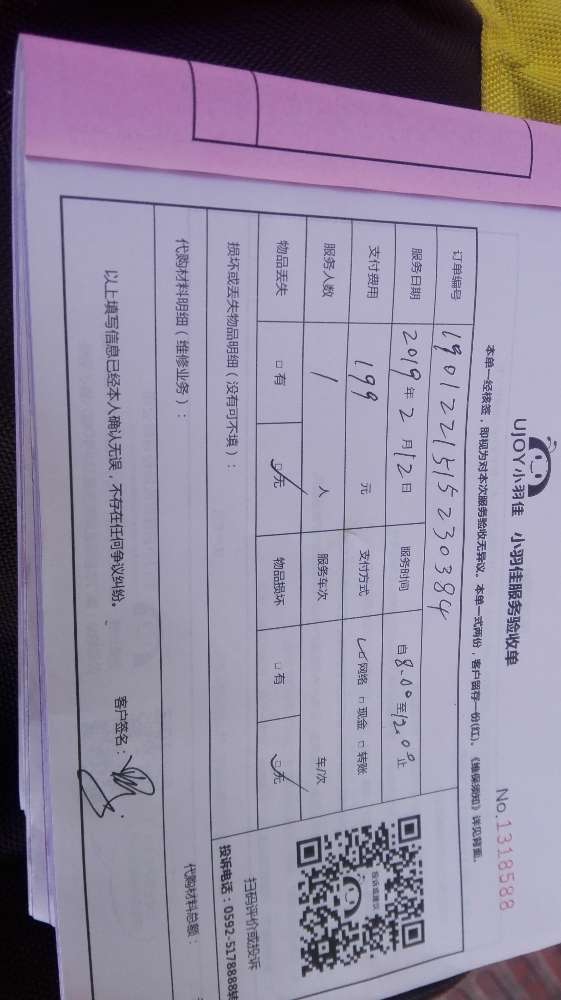 UJOY小羽佳 小羽佳服务验收单
No.1318588
本单一经核签，即视为对本次服务验收无异议。本单一式两份，客户留存一份(红)。《维保须知》详见背面。
订单编号 190122151523038​4
服务日期 2019年2月12日 服务时间 自8:00至12:00止
支付费用 199 元 支付方式 ☑网络 □现金 □转账
服务人数 1 人 服务车次 车/次
物品丢失 □有 ☑无 物品损坏 □有 ☑无
损坏或丢失物品明细（没有可不填）：
投诉或建议
扫码评价或投诉
投诉电话：0592-5178888转
代购材料明细（维修业务）：
代购材料总额：
以上填写信息已经本人确认无误，不存在任何争议纠纷。
客户签名：